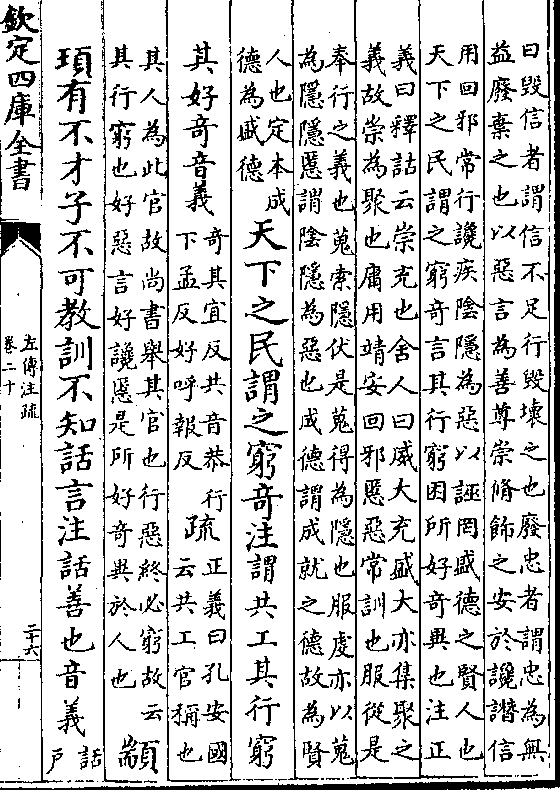 曰毀信者謂信不足行毀壞之也廢忠者謂忠為無
益廢棄之也以惡言為善尊崇脩飾之安於讒譖信
用回邪常行讒疾陰隱為惡以誣罔盛德之賢人也
天下之民謂之窮奇言其行窮困所好奇異也注正
義曰釋詁云崇充也舍人曰威大充盛大亦集聚之
義故崇為聚也庸用靖安回邪慝惡常訓也服從是
奉行之義也蒐索隱伏是蒐得為隱也服虔亦以蒐
為隱隱慝謂陰隱為惡也成德謂成就之德故為賢
人也定本成
德為盛德
天下之民謂之窮奇注謂共工其行窮
其好奇音義
奇其宜反共音恭行
下孟反好呼報反
疏
正義曰孔安國
云共工官稱也
其人為此官故尚書舉其官也行惡終必窮故云
其行窮也好惡言好讒慝是所好奇異於人也
顓
頊有不才子不可教訓不知話言注話善也音義
話
戶
欽定四庫全書
左傳注疏
卷二十
二十六